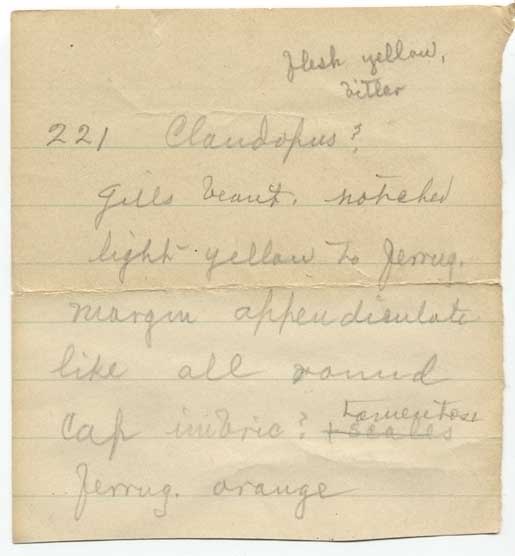 flesh yellow,
bitter
221 Claudopus?
Gills beaut. notched
light yellow to ferrug.
margin appendiculate
like all round
Cap imbric? tomentose
+ scales
Ferrug. orange